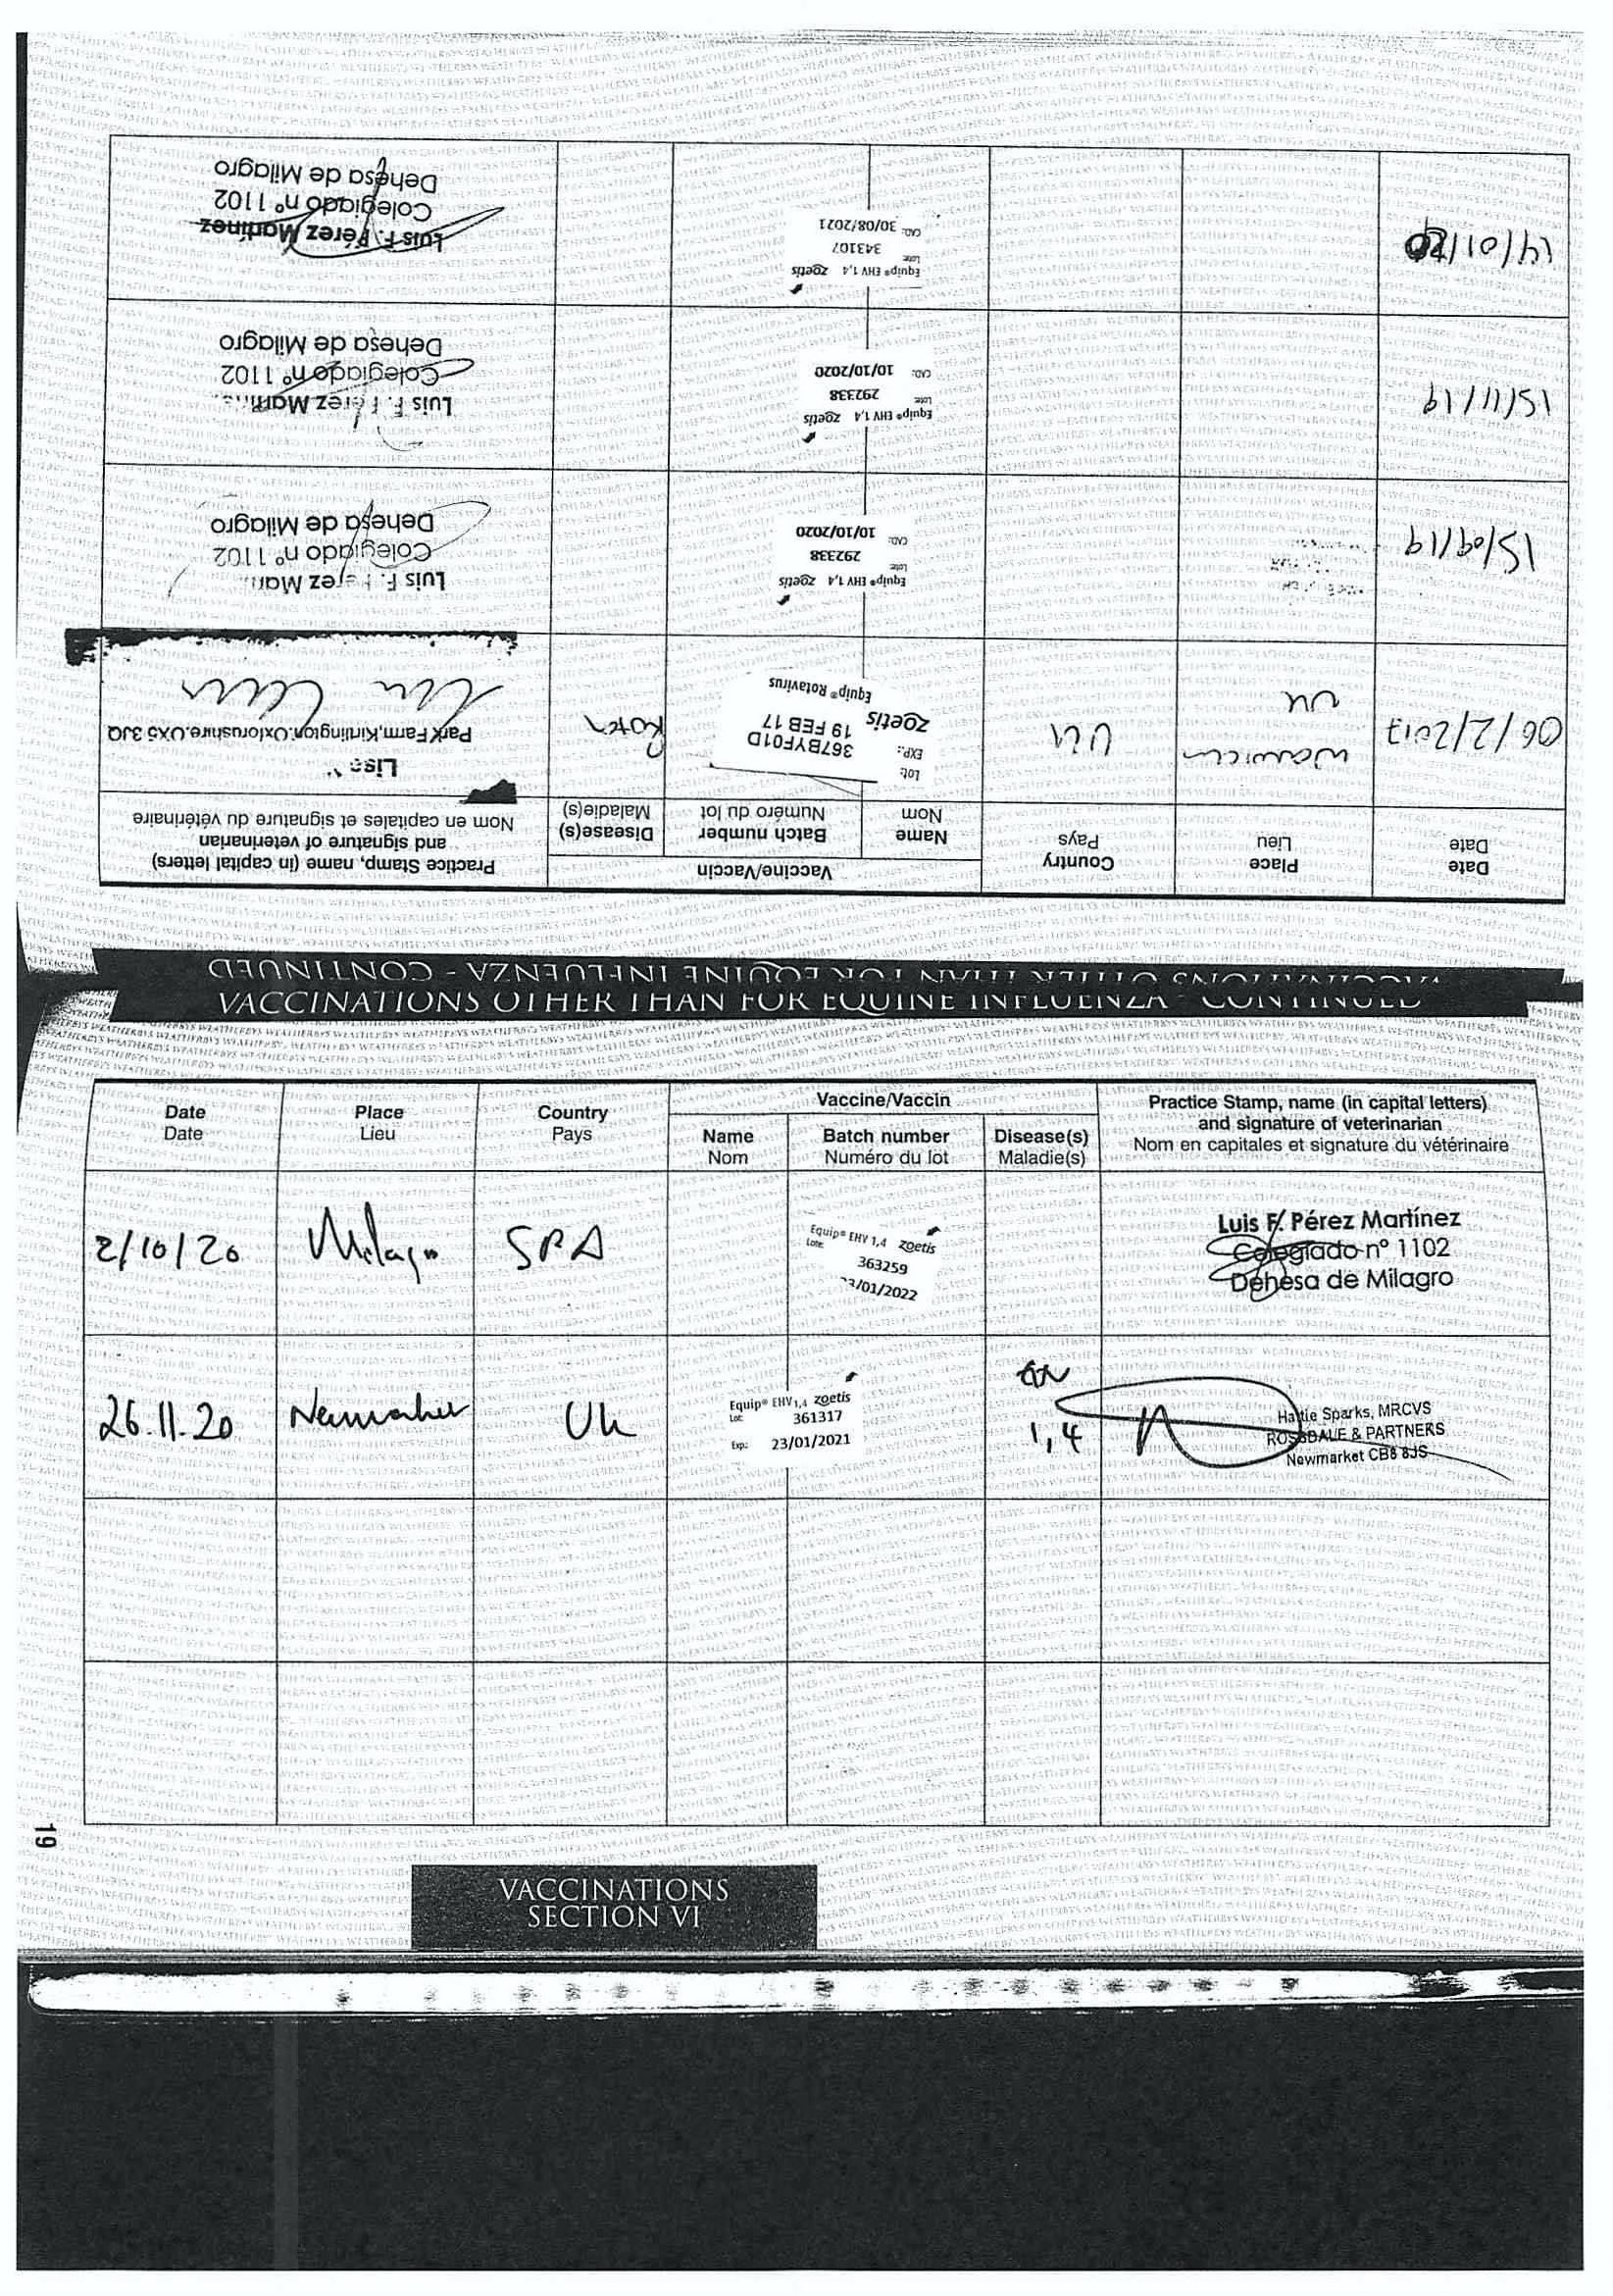 VACCINATIONS OTHER THAN FOR EQUINE INFLUENZA - CONTINUED
Date
Date
Place
Lieu
Country
Pays
Vaccine/Vaccin
Name
Nom
Batch number
Numéro du lot
Disease(s)
Maladie(s)
Practice Stamp, name (in capital letters)
and signature of veterinarian
Nom en capitales et signature du vétérinaire
06/2/2017
UK
UK
Lot: 367BYF01D
EXP.: 19 FEB 17
zoetis
Equip® Rotavirus
Rota
Lisa
Park Farm,Kirtlington.Oxfordshire.OX5 3JQ
15/09/19
Equip® EHV 1,4 zoetis
Lote: 292338
CAD.: 10/10/2020
Luis F. Pérez
Colegiado nº 1102
Dehesa de Milagro
15/11/19
Equip® EHV 1,4 zoetis
Lote: 292338
CAD.: 10/10/2020
Luis F. Pérez
Colegiado nº 1102
Dehesa de Milagro
14/01/20
Equip® EHV 1,4 zoetis
Lote: 343107
CAD.: 30/08/2021
Luis F. Pérez Martínez
Colegiado nº 1102
Dehesa de Milagro
VACCINATIONS OTHER THAN FOR EQUINE INFLUENZA - CONTINUED
Date
Date
Place
Lieu
Country
Pays
Vaccine/Vaccin
Name
Nom
Batch number
Numéro du lot
Disease(s)
Maladie(s)
Practice Stamp, name (in capital letters)
and signature of veterinarian
Nom en capitales et signature du vétérinaire
2/10/20
Milagro
SPA
Equip® EHV 1,4 zoetis
Lote: 363259
/01/2022
Luis F. Pérez Martínez
Colegiado nº 1102
Dehesa de Milagro
26.11.20
Newmarket
UK
Equip® EHV 1,4 zoetis
Lot: 361317
Exp.: 23/01/2021
1,4
Hattie Sparks, MRCVS
ROSSDALE & PARTNERS
Newmarket CB8 8JS
19
VACCINATIONS
SECTION VI